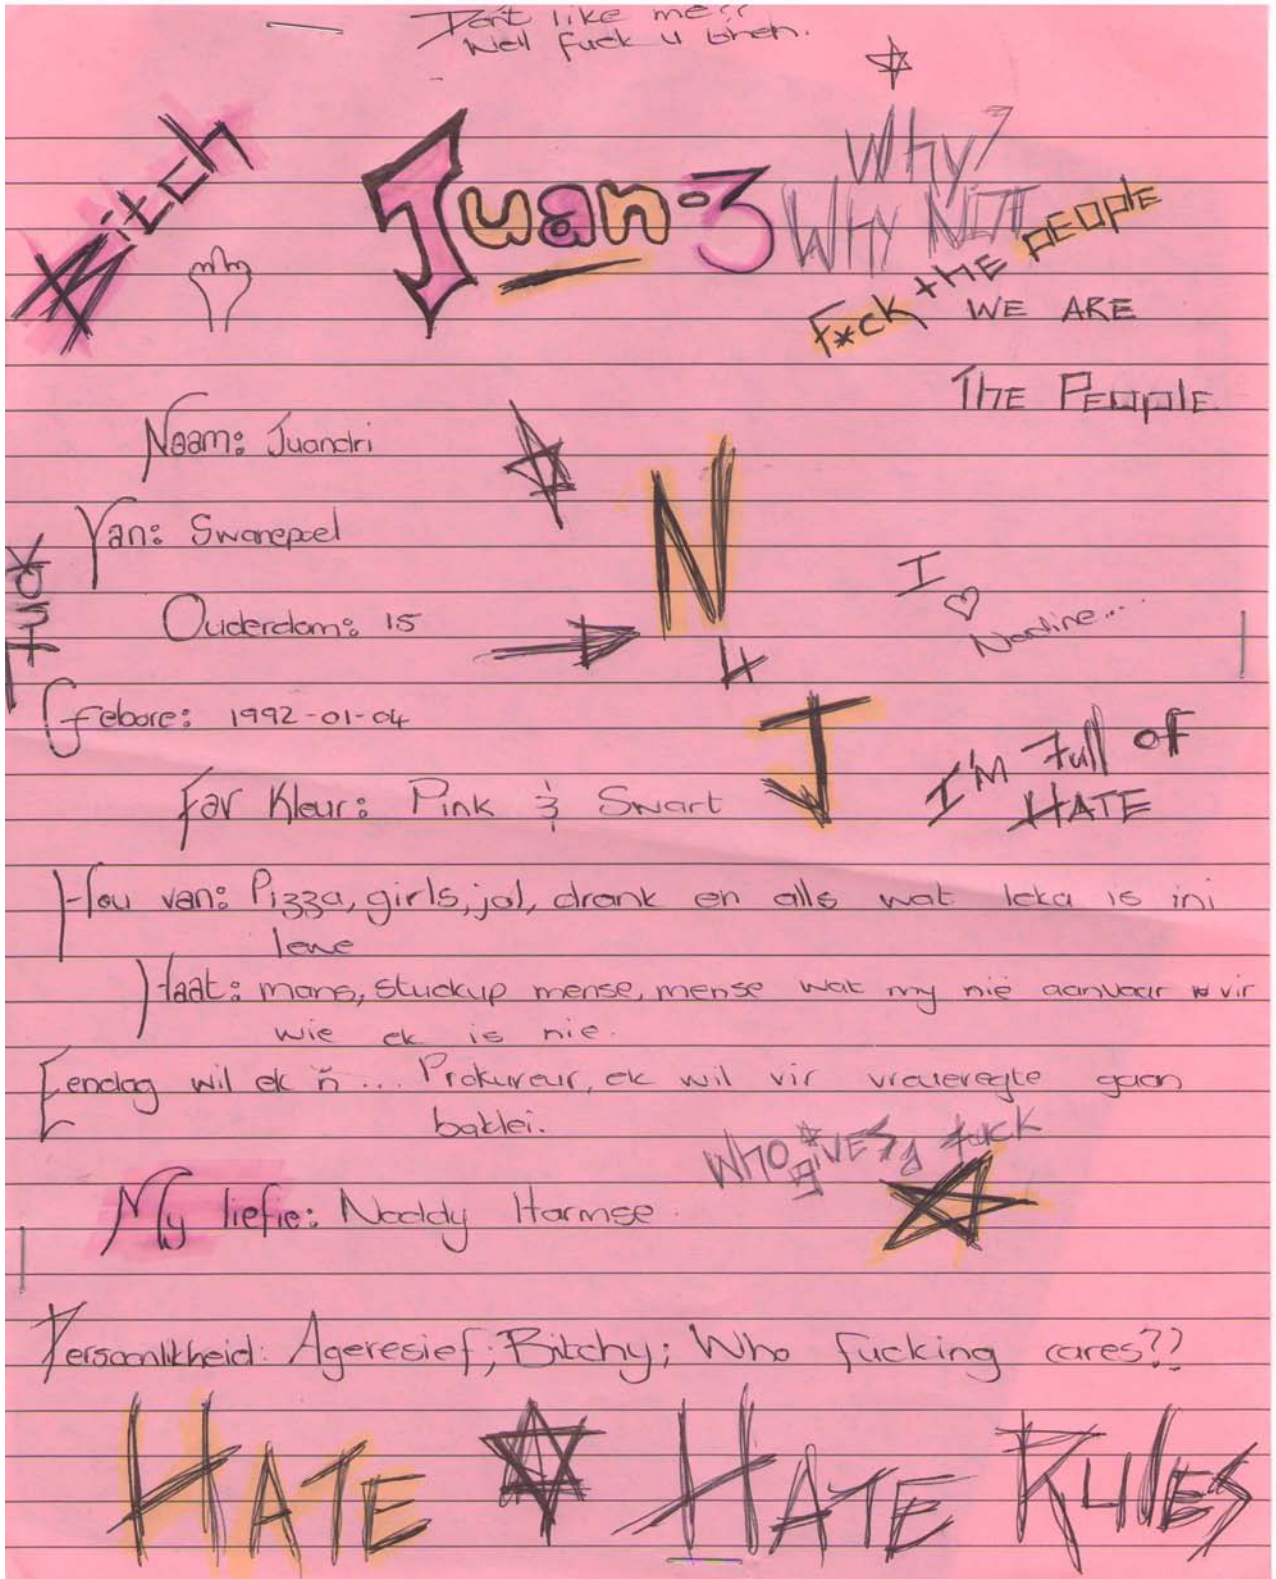 Don't like me??
Well fuck u then.
Bitch
Juan-3
Why?
Why NOT
F*ck tHE PEOPlE
WE ARE
THE PEOPlE
Naam: Juandri
Van: Swanepoel
Ouderdom: 15
Gebore: 1992-01-04
Fav Kleur: Pink & Swart
N
4
J
I
♡
Nadine...
I'M Full of
HATE
Hou van: Pizza, girls, jol, drank en alls wat leka is ini
lewe
Haat: mans, stuckup mense, mense wat my nie aanvaar vir
wie ek is nie.
Eendag wil ek ń... Prokureur, ek wil vir vroueregte gaan
baklei.
WHO giVES a fuck
My liefie: Noddy Harmse.
Persoonlikheid: Ageresief; Bitchy; Who fucking cares??
HATE HATE RULES